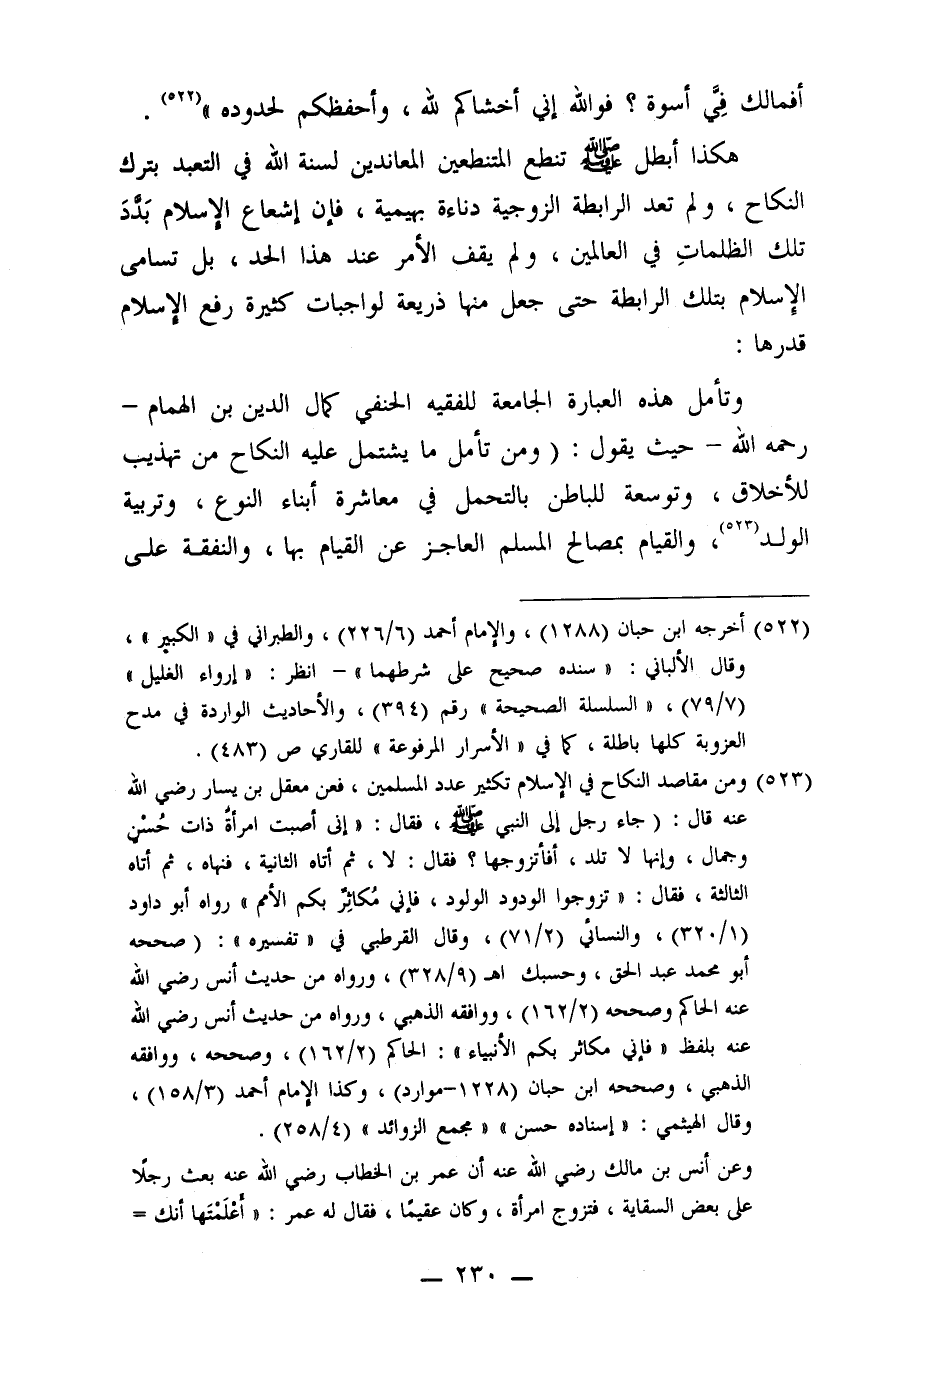 أفمالك فِيَّ أسوة ؟ فوالله إني أخشاكم لله ، وأحفظكم لحدوده »(٥٢٢) .
هكذا أبطل ﷺ تنطع المتنطعين المعاندين لسنة الله في التعبد بترك
النكاح ، ولم تعد الرابطة الزوجية دناءة بهيمية ، فإن إشعاع الإسلام بَدَّدَ
تلك الظلماتِ في العالمين ، ولم يقف الأمر عند هذا الحد ، بل تسامى
الإسلام بتلك الرابطة حتى جعل منها ذريعة لواجبات كثيرة رفع الإسلام
قدرها :
وتأمل هذه العبارة الجامعة للفقيه الحنفي كمال الدين بن الهمام –
رحمه الله – حيث يقول : ( ومن تأمل ما يشتمل عليه النكاح من تهذيب
للأخلاق ، وتوسعة للباطن بالتحمل في معاشرة أبناء النوع ، وتربية
الولد(٥٢٣)، والقيام بمصالح المسلم العاجز عن القيام بها ، والنفقة على
(٥٢٢) أخرجه ابن حبان (١٢٨٨) ، والإمام أحمد (٢٢٦/٦) ، والطبراني في « الكبير » ،
وقال الألباني : « سنده صحيح على شرطهما » – انظر : « إرواء الغليل »
(٧٩/٧) ، « السلسلة الصحيحة » رقم (٣٩٤) ، والأحاديث الواردة في مدح
العزوبة كلها باطلة ، كما في « الأسرار المرفوعة » للقاري ص (٤٨٣) .
(٥٢٣) ومن مقاصد النكاح في الإسلام تكثير عدد المسلمين ، فعن معقل بن يسار رضي الله
عنه قال : ( جاء رجل إلى النبي ﷺ ، فقال : « إنى أصبت امرأةً ذات حُسْنٍ
وجمال ، وإنها لا تلد ، أفأتزوجها ؟ فقال : لا ، ثم أتاه الثانية ، فنهاه ، ثم أتاه
الثالثة ، فقال : « تزوجوا الودود الولود ، فإني مُكاثِرٌ بكم الأمم » رواه أبو داود
(٣٢٠/١) ، والنسائي (٧١/٢) ، وقال القرطبي في « تفسيره » : ( صححه
أبو محمد عبد الحق ، وحسبك اهـ (٣٢٨/٩) ، ورواه من حديث أنس رضي الله
عنه الحاكم وصححه (١٦٢/٢) ، ووافقه الذهبي ، ورواه من حديث أنس رضي الله
عنه بلفظ « فإني مكاثر بكم الأنبياء » : الحاكم (١٦٢/٢) ، وصححه ، ووافقه
الذهبي ، وصححه ابن حبان (١٢٢٨–موارد) ، وكذا الإمام أحمد (١٥٨/٣) ،
وقال الهيثمي : « إسناده حسن » « مجمع الزوائد » (٢٥٨/٤) .
وعن أنس بن مالك رضي الله عنه أن عمر بن الخطاب رضي الله عنه بعث رجلًا
على بعض السقاية ، فتزوج امرأة ، وكان عقيمًا ، فقال له عمر : « أَعْلَمْتَها أنك =
— ٢٣٠ —